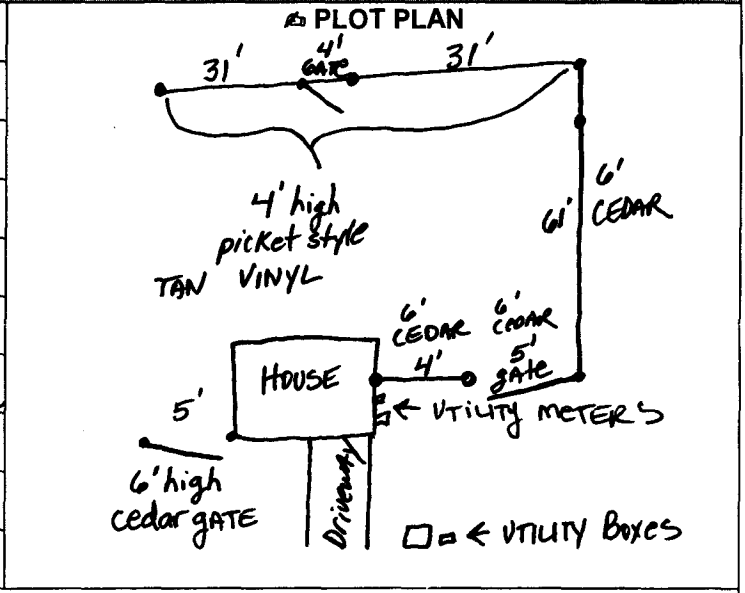 ✍ PLOT PLAN
31'
4'
GATE
31'
4' high
picket style
TAN VINYL
61'
6'
CEDAR
6'
CEDAR
4'
6'
CEDAR
5'
gate
HOUSE
← UTILITY METERS
5'
6' high
cedar GATE
Driveway
← UTILITY BOXES